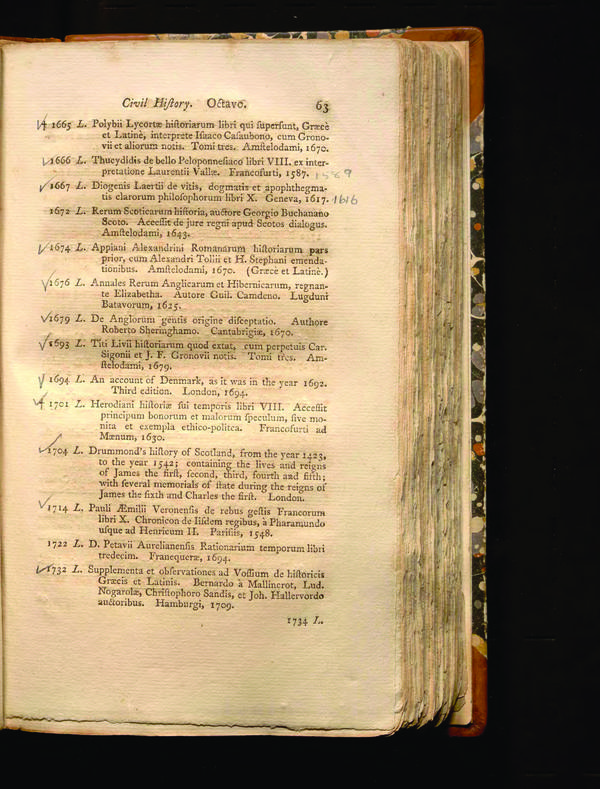 Civil Hiſtory. Octavo. 63
4 1665 L. Polybii Lycortæ hiſtoriarum libri qui ſuperſunt, Græcè
et Latinè, interprete Iſaaco Caſaubono, cum Grono-
vii et aliorum notis. Tomi tres. Amſtelodami, 1670.
1666 L. Thucydidis de bello Peloponneſiaco libri VIII. ex inter-
pretatione Laurentii Vallæ. Francofurti, 1587. 1589
1667 L. Diogenis Laertii de vitis, dogmatis et apophthegma-
tis clarorum philoſophorum libri X. Geneva, 1617. 1616
1672 L. Rerum Scoticarum hiſtoria, auctore Georgio Buchanano
Scoto. Acceſſit de jure regni apud Scotos dialogus.
Amſtelodami, 1643.
1674 L. Appiani Alexandrini Romanarum hiſtoriarum pars
prior, cum Alexandri Tollii et H. Stephani emenda-
tionibus. Amſtelodami, 1670. (Græcè et Latinè.)
1676 L. Annales Rerum Anglicarum et Hibernicarum, regnan-
te Elizabetha. Autore Guil. Camdeno. Lugduni
Batavorum, 1625.
1679 L. De Anglorum gentis origine diſceptatio. Authore
Roberto Sheringhamo. Cantabrigiæ, 1670.
1693 L. Titi Livii hiſtoriarum quod extat, cum perpetuis Car.
Sigonii et J. F. Gronovii notis. Tomi tres. Am-
ſtelodami, 1679.
1694 L. An account of Denmark, as it was in the year 1692.
Third edition. London, 1694.
4 1701 L. Herodiani hiſtoriæ ſui temporis libri VIII. Acceſſit
principum bonorum et malorum ſpeculum, ſive mo-
nita et exempla ethico-politca. Francofurti ad
Mænum, 1630.
1704 L. Drummond's hiſtory of Scotland, from the year 1423,
to the year 1542; containing the lives and reigns
of James the firſt, ſecond, third, fourth and fifth;
with ſeveral memorials of ſtate during the reigns of
James the ſixth and Charles the firſt. London.
1714 L. Pauli Æmilii Veronenſis de rebus geſtis Francorum
libri X. Chronicon de Iiſdem regibus, à Pharamundo
uſque ad Henricum II. Pariſiis, 1548.
1722 L. D. Petavii Aurelianenſis Rationarium temporum libri
tredecim. Franequeræ, 1694.
1732 L. Supplementa et obſervationes ad Voſſium de hiſtoricis
Græcis et Latinis. Bernardo à Mallincrot, Lud.
Nogarolæ, Chriſtophoro Sandis, et Joh. Hallervordo
auctoribus. Hamburgi, 1709.
1734 L.